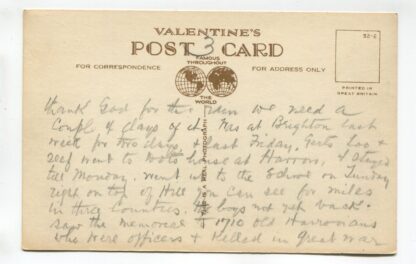 VALENTINE'S
POST 3 CARD
FAMOUS THROUGHOUT
FOR CORRESPONDENCE
FOR ADDRESS ONLY
THE WORLD
PRINTED IN GREAT BRITAIN
THIS IS A REAL PHOTOGRAPH
thank God for the rain we need a
Couple of days of it. Was at Brighton last
week for two days, & last Friday, &
self went to house at Harrow, & stayed
till Monday. went up to the School on Sunday
right on top of Hill you can see for miles
in Countries. boys not yet back.
saw the memorial to 1710 old Harrovians
who were officers & killed in Great War